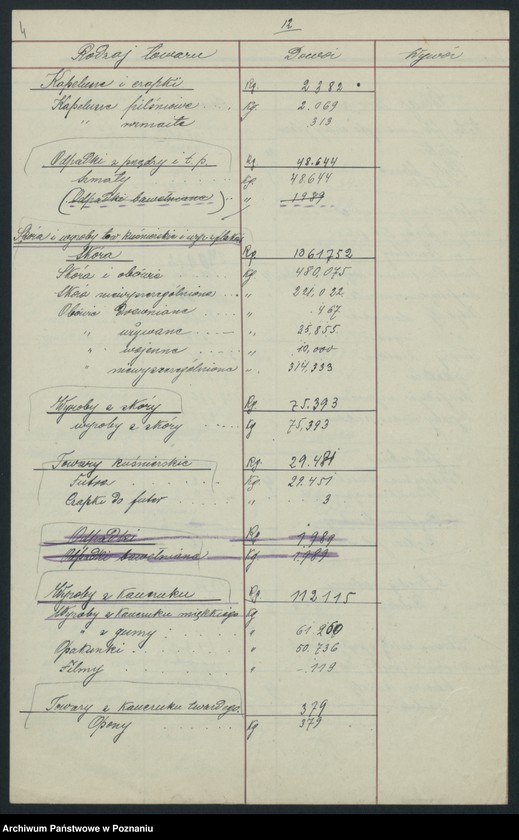 4
12
Rodzaj towaru Dowóz Wywóz
Kapelusze i czapki Kg 2.382
Kapelusze pilśniowe Kg. 2.069
" rozmaite 313
Odpadki z przędzy i t.p. Kg 48.644
Szmaty Kg. 48.644
(Odpadki bawełniane) " 1989
Skóra i wyroby tow. kuśnierskie i
Skóra Kg 1061752
Skóra i obówie Kg. 480,075
Skóra niewyszczególniona " 221,022
Obówie " .467
" używane " 35,855
" wojenne " 10,000
" niewyszczególnione " 314,333
Wyroby z skóry Kg. 75.393
wyroby z skóry Kg 75,393
Towary kuśnierskie Kg. 29.481
Futra Kg. 29.451
Czapki do futer " 3
Odpadki Kg 1,989
Odpadki bawełniane Kg. 1.989
Wyroby z kauczuku Kg. 112115
Wyroby z kauczuku miękkiego Kg
" z gumy " 61260
Opakunki " 50.736
Filmy " 119
Towary z kauczuku twardego. 379
Opony Kg 379
Archiwum Państwowe w Poznaniu